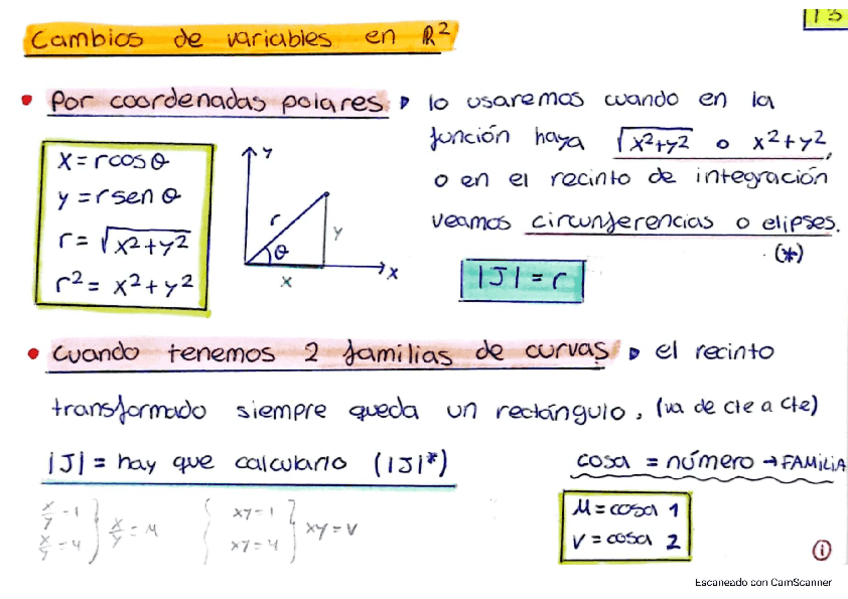 13
Cambios de variables en R²
• Por coordenadas polares ▸ lo usaremos cuando en la
función haya √x²+y² o x²+y²,
o en el recinto de integración
veamos circunferencias o elipses.
(*)
x = r cos θ
y = r sen θ
r = √x²+y²
r² = x²+y²
y
r
y
θ
x
x
|J| = r
• Cuando tenemos 2 familias de curvas ▸ el recinto
transformado siempre queda un rectángulo, (va de cte a cte)
|J| = hay que calcularlo (|J|*)
cosa = número → FAMILIA
x/y = 1
x/y = 4
} x/y = u
{ xy = 1
xy = 4 } xy = v
u = cosa 1
v = cosa 2
i
Escaneado con CamScanner